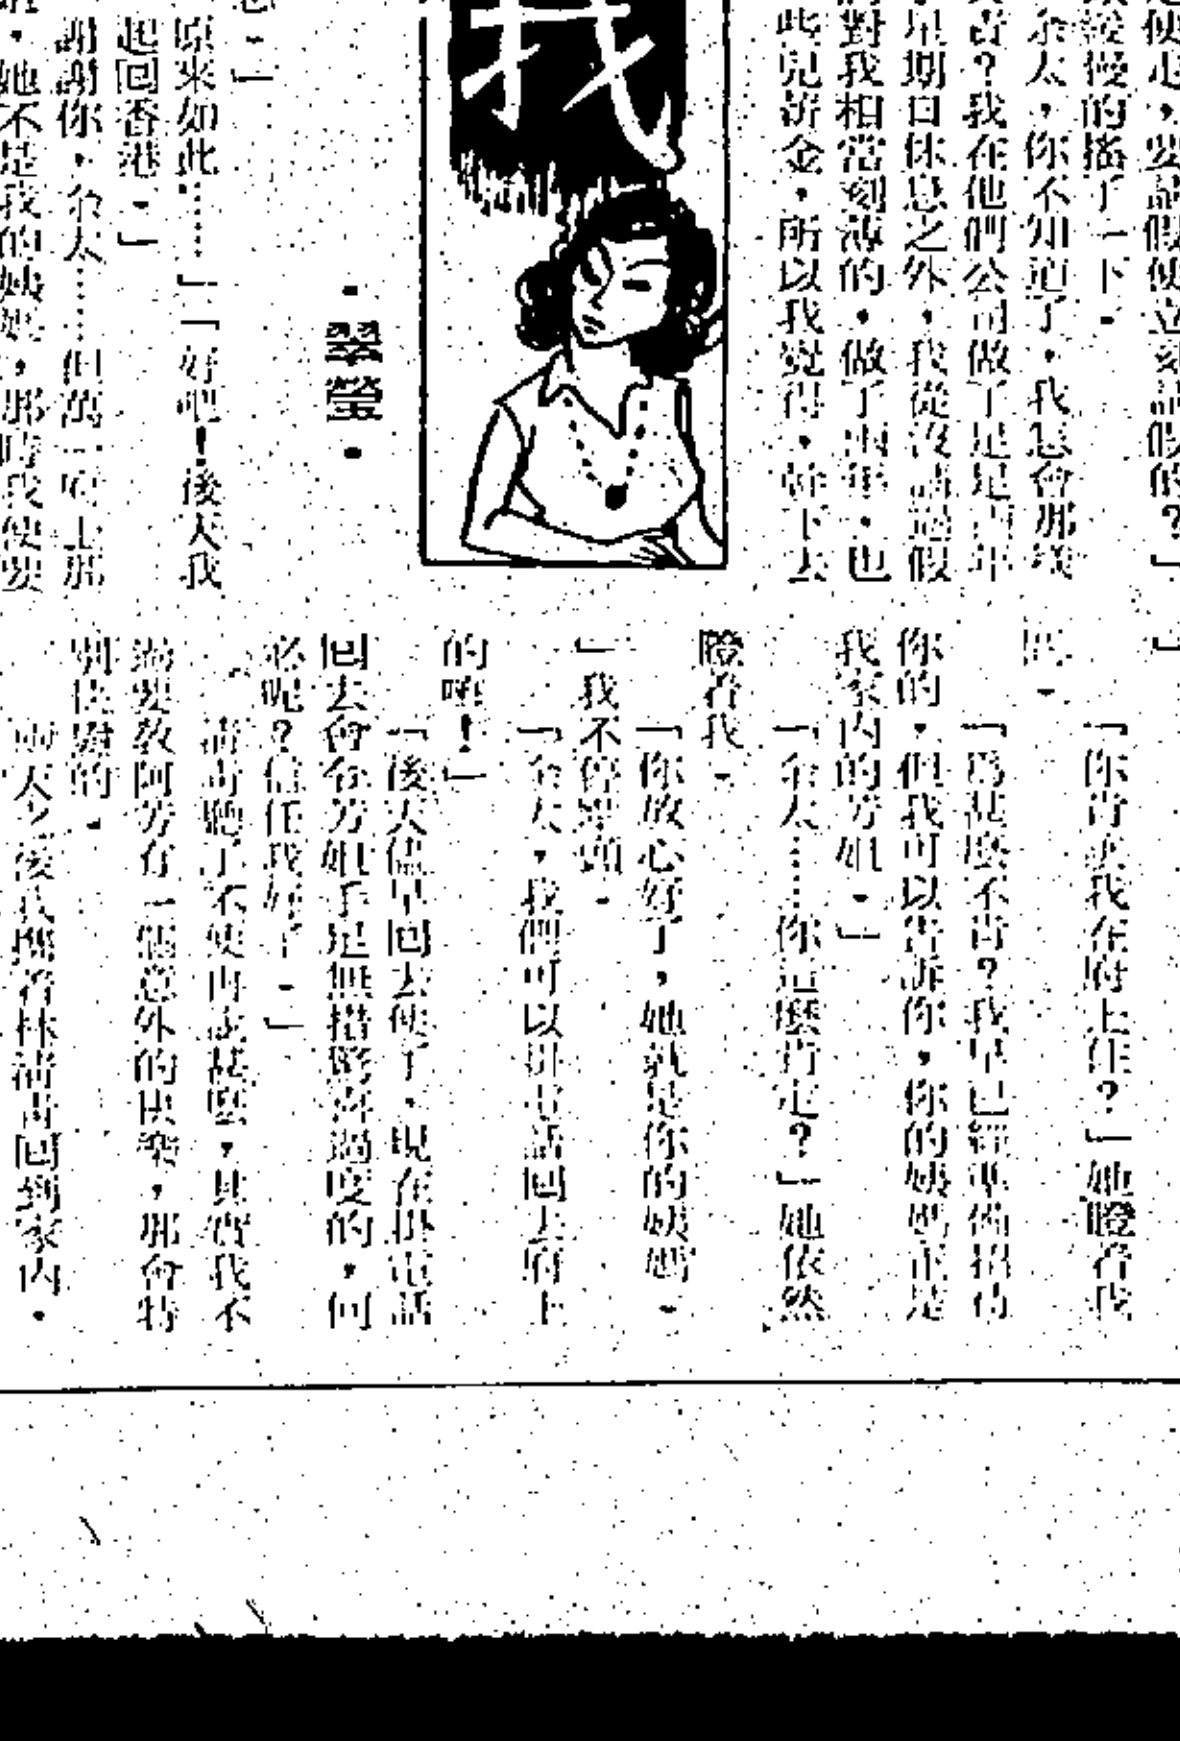 是便走,要請假便立刻請假的?」
緩慢的搖了一下。
余太,你不知道了,我怎會那樣
?我在他們公司做了足足兩年
星期日休息之外,我從沒請過假
對我相當刻薄的,做了兩年,也
些兒薪金,所以我覺得,幹下去
我
•翠瑩•
」
原來如此……」「好吧!後天我
起回香港。」
謝謝你,余太……但萬一府上那
,她不是我的姨媽,那時我便要
」
「你肯讓我在府上住?」她瞪着我
問。
「爲甚麼不肯?我早已經準備招待
你的,但我可以告訴你,你的姨媽正是
我家内的芳姐。」
「余太……你這麼肯定?」她依然
瞪着我。
「你放心好了,她就是你的姨媽。
」我不停舉頭。
「余太,我們可以掛電話回去府上
的啊!」
「後天儘早回去便了,現在掛電話
回去會令芳姐手足無措驚喜過度的,何
必呢?信任我好了。」
清青聽了不便再說甚麼,其實我不
過要敎阿芳有一個意外的快樂,那會特
別快慰的。
兩天之後我攜着林清青回到家内,